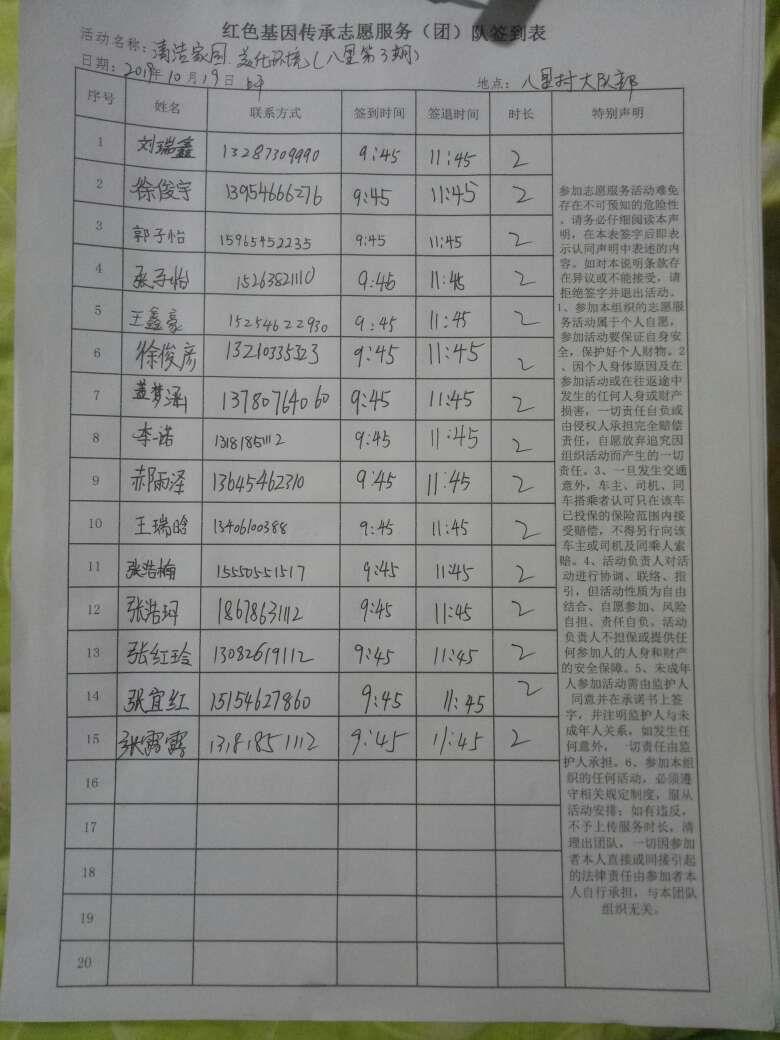 红色基因传承志愿服务（团）队签到表
活动名称：清洁家园 美化环境（八里第3期）
日期：2019年10月19日 地点：八里村大队部
序号 姓名 联系方式 签到时间 签退时间 时长 特别声明
1 刘瑞鑫 13287309990 9:45 11:45 2
2 徐俊宇 13954666276 9:45 11:45 2
3 郭子怡 15965452235 9:45 11:45 2
4 张子怡 15263821110 9:45 11:45 2
5 王鑫豪 15254622930 9:45 11:45 2
6 徐俊彦 13210335323 9:45 11:45 2
7 盖梦涵 13780764060 9:45 11:45 2
8 李一诺 13181851112 9:45 11:45 2
9 郝雨泽 13645462310 9:45 11:45 2
10 王瑞晗 13406100388 9:45 11:45 2
11 张浩梅 15550551517 9:45 11:45 2
12 张浩珂 18678631112 9:45 11:45 2
13 张红玲 13082619112 9:45 11:45 2
14 张宜红 15154627860 9:45 11:45 2
15 张露露 13181851112 9:45 11:45 2
16
17
18
19
20
参加志愿服务活动难免
存在不可预知的危险性
，请务必仔细阅读本声
明，在本表签字后即表
示认同声明中表述的内
容。如对本说明条款存
在异议或不能接受，请
拒绝签字并退出活动。
1、参加本组织的志愿服
务活动属于个人自愿，
参加活动要保证自身安
全，保护好个人财物。2
、因个人身体原因及在
参加活动或在往返途中
发生的任何人身或财产
损害，一切责任自负或
由侵权人承担完全赔偿
责任，自愿放弃追究因
组织活动而产生的一切
责任。3、一旦发生交通
意外，车主、司机、同
车搭乘者认可只在该车
已投保的保险范围内接
受赔偿，不得另行向该
车主或司机及同乘人索
赔。4、活动负责人对活
动进行协调、联络、指
引，但活动性质为自由
结合、自愿参加、风险
自担、责任自负。活动
负责人不担保或提供任
何参加人的人身和财产
的安全保障。5、未成年
人参加活动需由监护人
同意并在承诺书上签
字，并注明监护人与未
成年人关系，如发生任
何意外，一切责任由监
护人承担。6、参加本组
织的任何活动，必须遵
守相关规定制度，服从
活动安排；如有违反，
不予上传服务时长，清
理出团队，一切因参加
者本人直接或间接引起
的法律责任由参加者本
人自行承担，与本团队
组织无关。